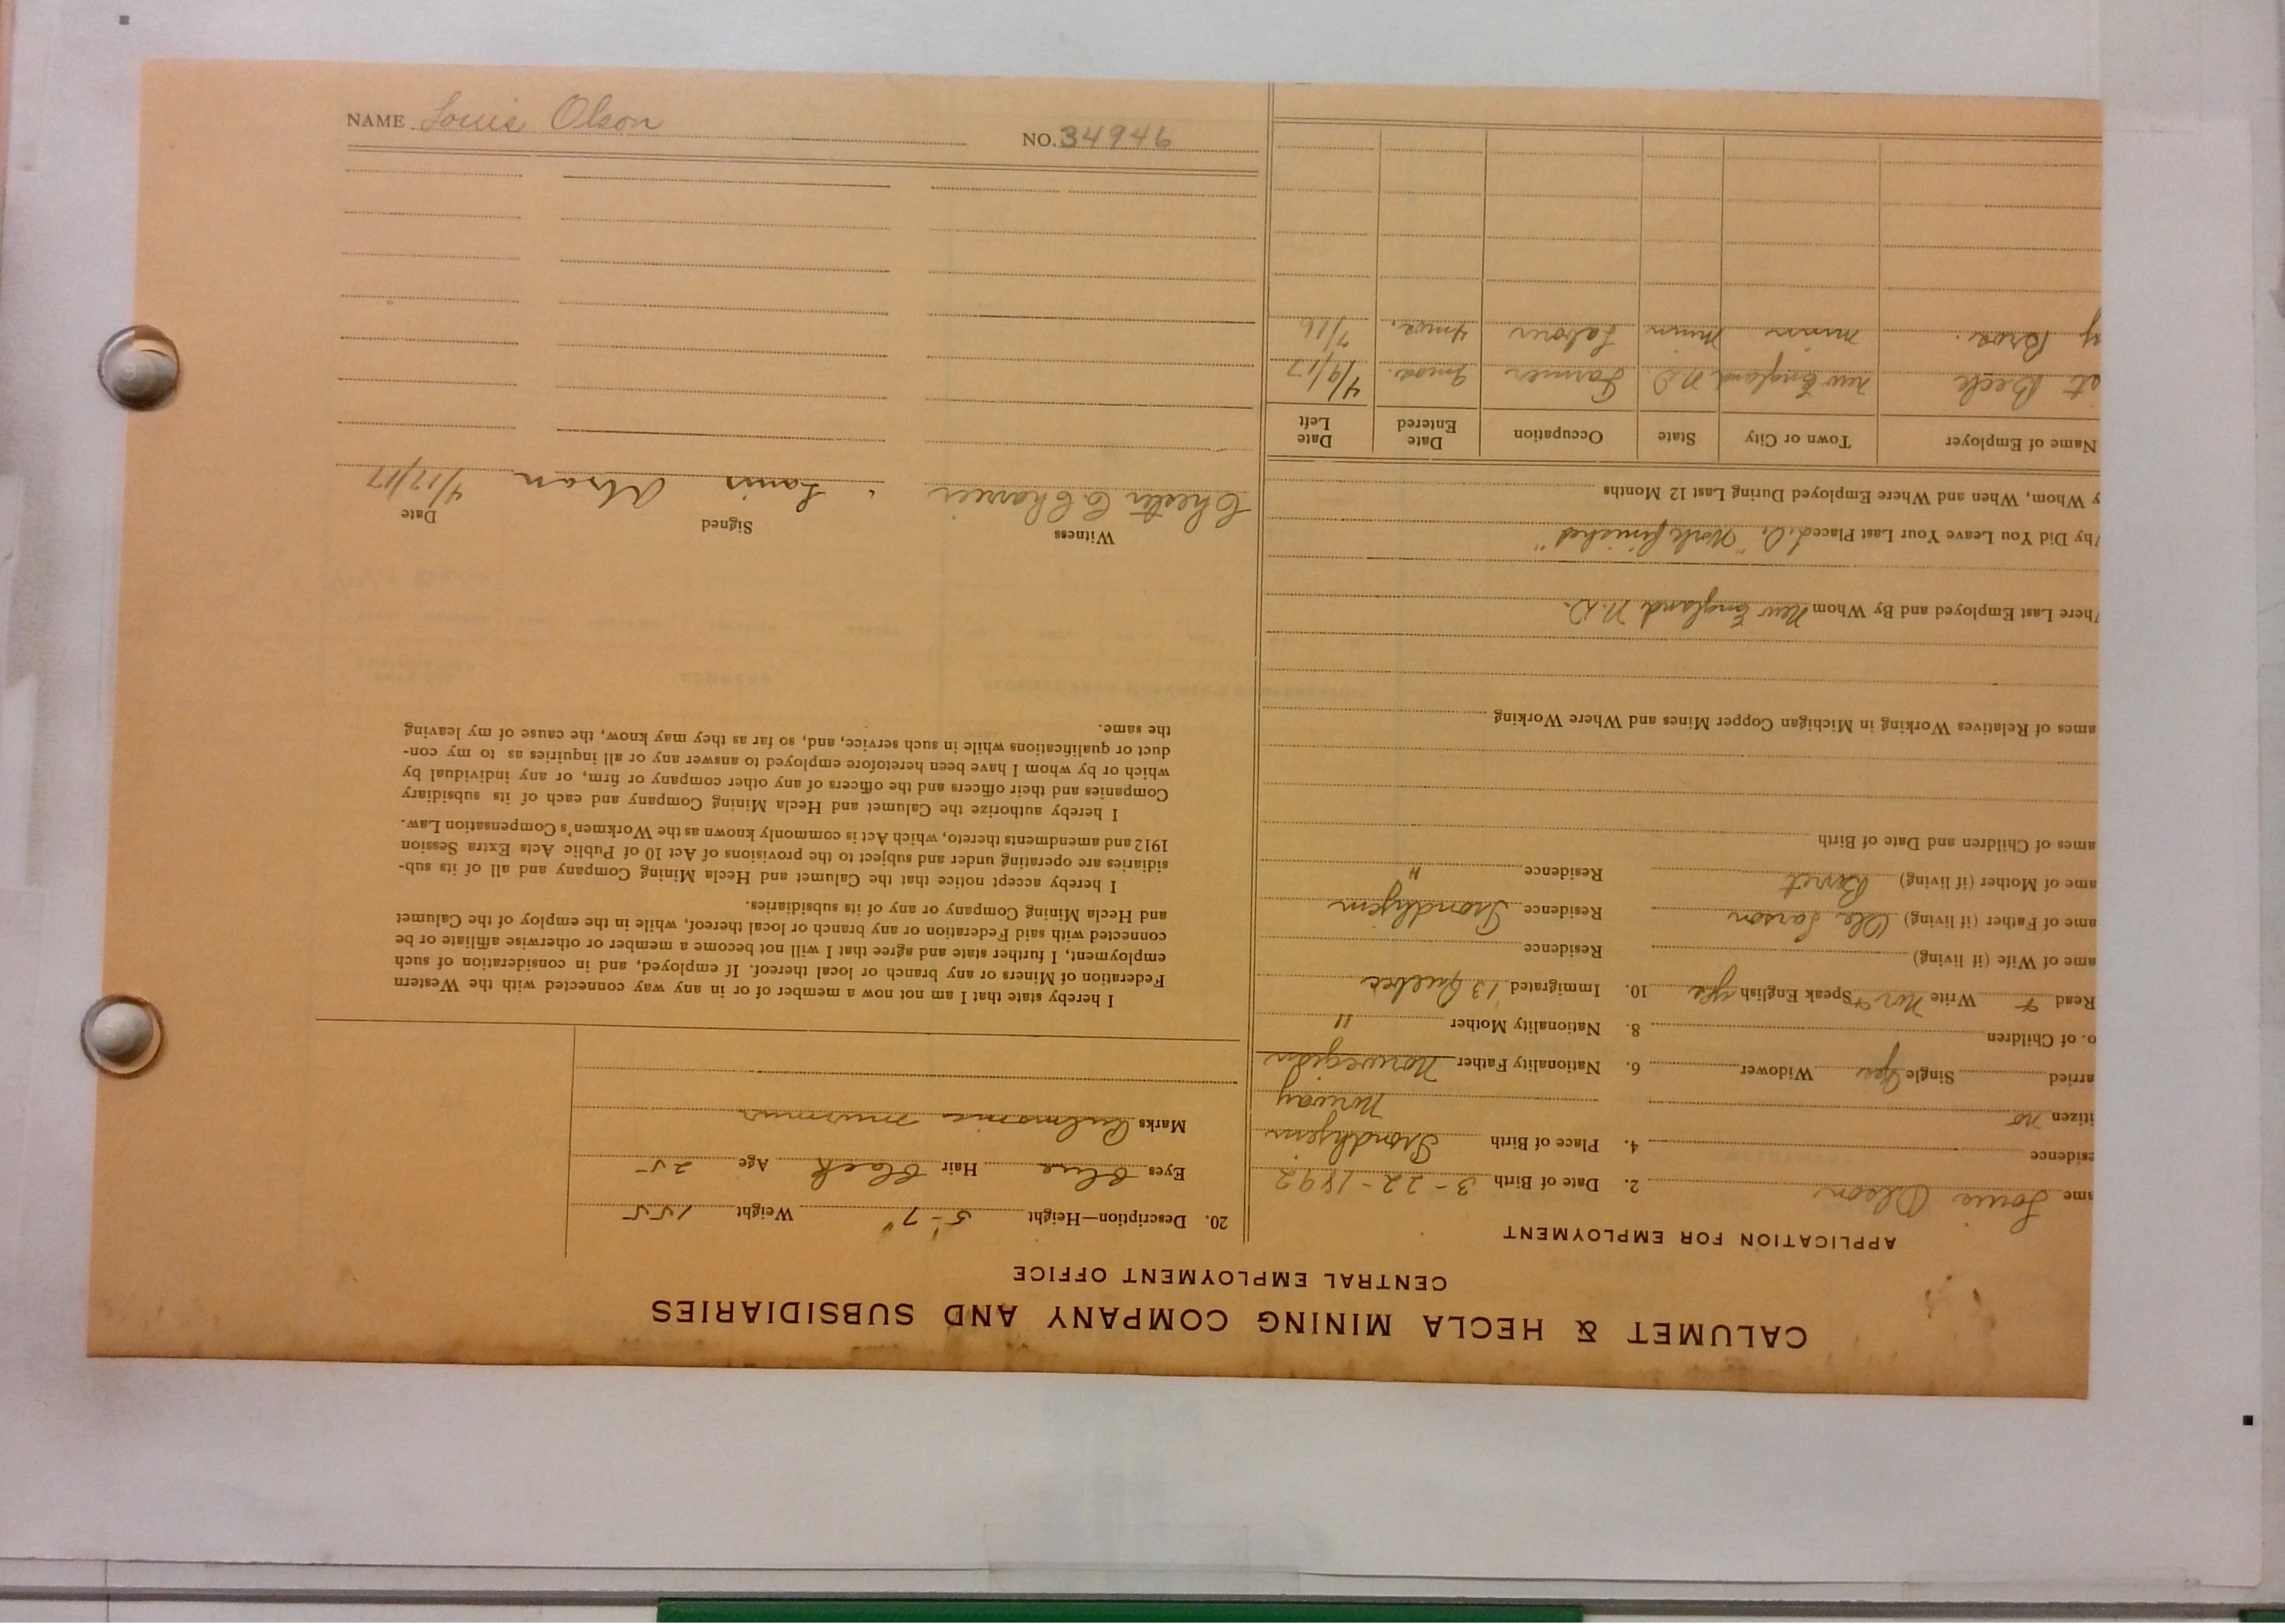 CALUMET & HECLA MINING COMPANY AND SUBSIDIARIES
CENTRAL EMPLOYMENT OFFICE
APPLICATION FOR EMPLOYMENT
ame Louis Olson 2. Date of Birth 3-22-1892
esidence 4. Place of Birth Trondhjem
itizen no Norway
arried Single Yes Widower 6. Nationality Father Norwegian
o. of Children 8. Nationality Mother "
Read + Write Nor + Speak English yes 10. Immigrated '13 Quebec
ame of Wife (if living) Residence
ame of Father (if living) Ole Larson Residence Trondhjem
ame of Mother (if living) Residence "
ames of Children and Date of Birth
ames of Relatives Working in Michigan Copper Mines and Where Working
here Last Employed and By Whom New England N.D.
hy Did You Leave Your Last Place "Work finished"
y Whom, When and Where Employed During Last 12 Months
Name of Employer Town or City State Occupation Date Entered Date Left
st Beck New England N.D Farmer 9 mos. 4/9/17
y Bros. Minn Minn Laborer 4 mos. 7/16
20. Description—Height 5'-7" Weight 155
Eyes blue Hair black Age 25
Marks Pulmonic murmur
I hereby state that I am not now a member of or in any way connected with the Western
Federation of Miners or any branch or local thereof. If employed, and in consideration of such
employment, I further state and agree that I will not become a member or otherwise affiliate or be
connected with said Federation or any branch or local thereof, while in the employ of the Calumet
and Hecla Mining Company or any of its subsidiaries.
I hereby accept notice that the Calumet and Hecla Mining Company and all of its sub-
sidiaries are operating under and subject to the provisions of Act 10 of Public Acts Extra Session
1912 and amendments thereto, which Act is commonly known as the Workmen's Compensation Law.
I hereby authorize the Calumet and Hecla Mining Company and each of its subsidiary
Companies and their officers and the officers of any other company or firm, or any individual by
which or by whom I have been heretofore employed to answer any or all inquiries as to my con-
duct or qualifications while in such service, and, so far as they may know, the cause of my leaving
the same.
Witness Signed Date
Chester C Louis Olson 4/17/17
NAME Louis Olson NO. 34946